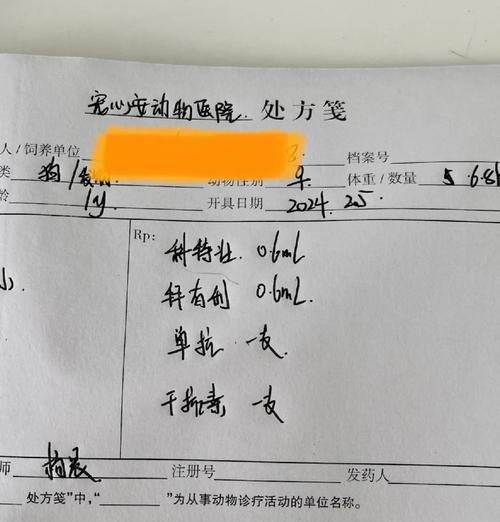 宠心安动物医院 处方笺
人/饲养单位 档案号
类 狗/ 动物性别 ♀ 体重/数量 5.68k
龄 1y 开具日期 2024.2.5
Rp:
科特壮 0.6mL
拜有利 0.6mL
单抗 一支
干扰素 一支
师 注册号 发药人
处方笺"中,"______"为从事动物诊疗活动的单位名称。